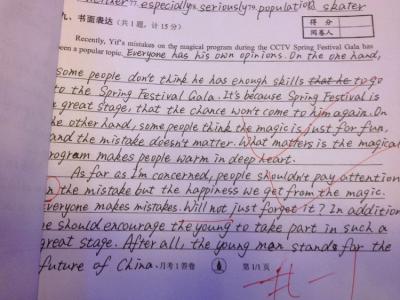 especially seriously population skater
九、书面表达（共1题，计15分）
得分
阅卷人
Recently, Yif's mistakes on the magical program during the CCTV Spring Festival Gala has
een a popular topic. Everyone has his own opinions. On the one hand,
some people don't think he has enough skills that he to go
to the Spring Festival Gala. It's because Spring Festival is
great stage, that the chance won't come to him again. On
he other hand, some people think the magic is just for fun,
and the mistake doesn't matter. What matters is the magical
rogram makes people warm in deep heart.
As far as I'm concerned, people shouldn't pay attention
n the mistake but the happiness we get from the magic.
veryone makes mistakes. Will not just forget it? In addition
e should encourage the young to take part in such a
great stage. After all, the young man stands for the
future of China.
月考1答卷 第1/1页